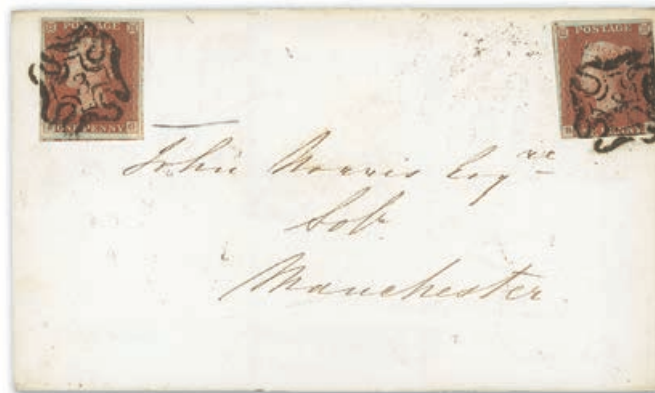 POSTAGE
3
ONE PENNY
POSTAGE
3
PENNY
John Norris Esqre
Solr
Manchester